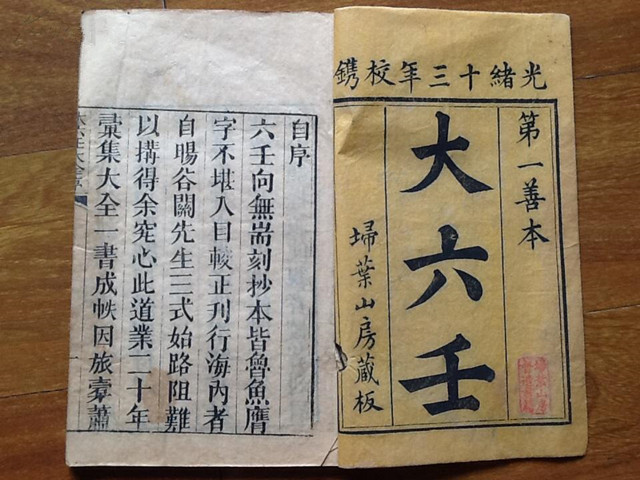 光緒十三年校鐫
第一善本
大六壬
埽葉山房藏板
自序
六壬向無耑刻抄本皆魯魚膺
字不堪入目較正刊行海內者
自暘谷關先生三式始路阻難
以搆得余究心此道業二十年
彙集大全一書成帙因旅橐蕭